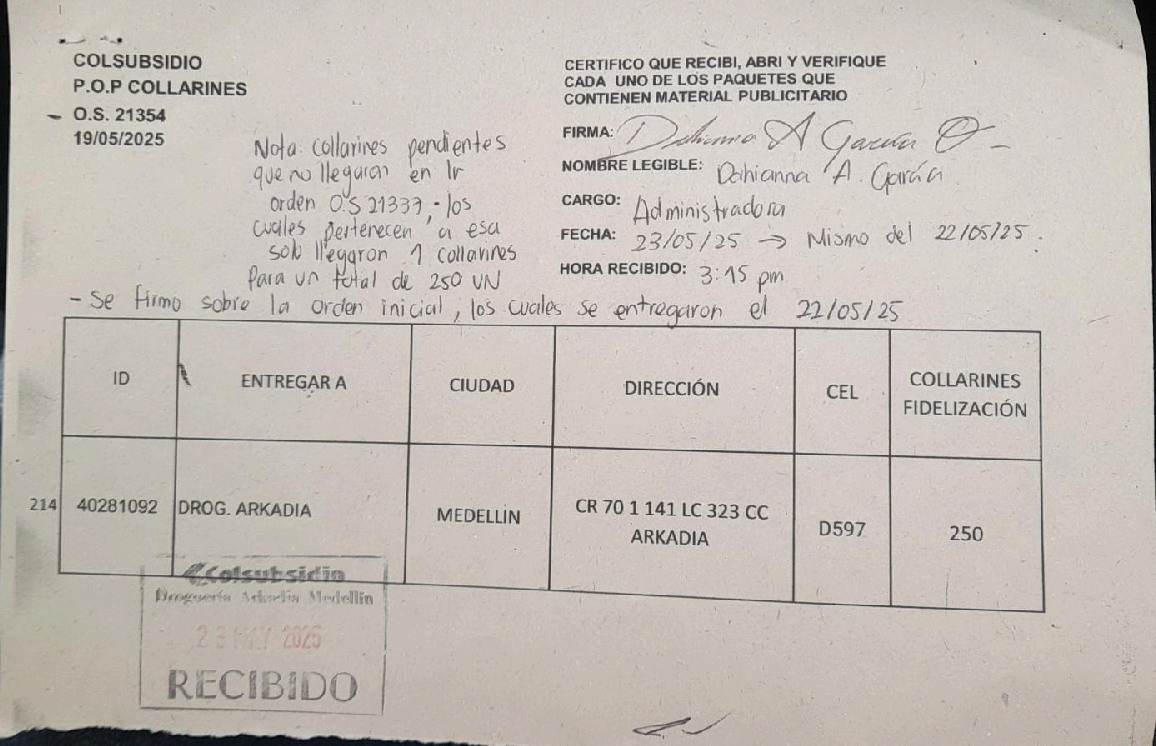 COLSUBSIDIO
P.O.P COLLARINES
O.S. 21354
19/05/2025
Nota: collarines pendientes
que no llegaron en la
orden O.S 21337, - los
cuales pertenecen a esa
solo llegaron 1 collarines
para un total de 250 UN
- Se firmo sobre la orden inicial, los cuales se entregaron el 22/05/25
CERTIFICO QUE RECIBI, ABRI Y VERIFIQUE
CADA UNO DE LOS PAQUETES QUE
CONTIENEN MATERIAL PUBLICITARIO
FIRMA: Dahianna A García O
NOMBRE LEGIBLE: Dahianna A. García
CARGO: Administradora
FECHA: 23/05/25 → Mismo del 22/05/25.
HORA RECIBIDO: 3:15 pm
ID ENTREGAR A CIUDAD DIRECCIÓN CEL COLLARINES
FIDELIZACIÓN
214 40281092 DROG. ARKADIA MEDELLIN CR 70 1 141 LC 323 CC
ARKADIA D597 250
Colsubsidio
Droguería Arkadia Medellín
23 MAY 2025
RECIBIDO